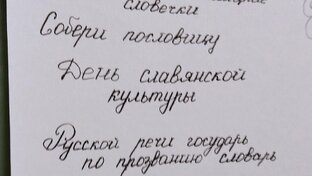 словечки
Собери пословицу
День славянской
культуры
Русской речи государь
по прозванию словарь